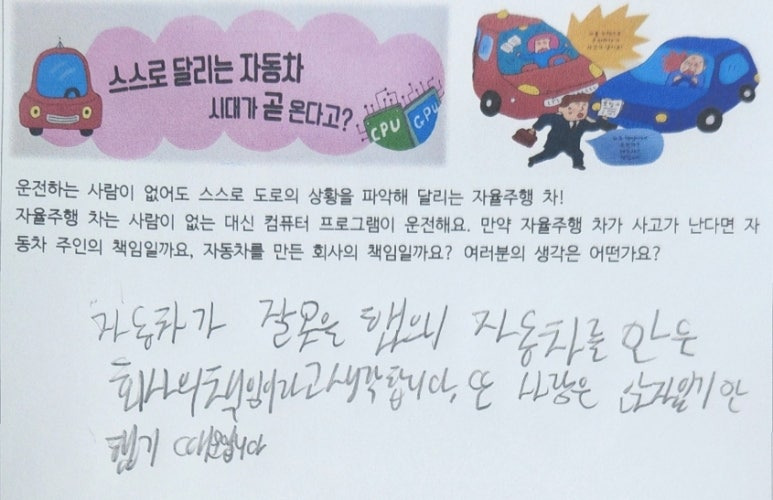 스스로 달리는 자동차
시대가 곧 온다고?
CPU
GPU
운전하는 사람이 없어도 스스로 도로의 상황을 파악해 달리는 자율주행 차!
자율주행 차는 사람이 없는 대신 컴퓨터 프로그램이 운전해요. 만약 자율주행 차가 사고가 난다면 자
동차 주인의 책임일까요, 자동차를 만든 회사의 책임일까요? 여러분의 생각은 어떤가요?
자동차가 잘못을 자동차를 만든
회사의 책임이라고 생각합니다, 또 사람은
때문입니다